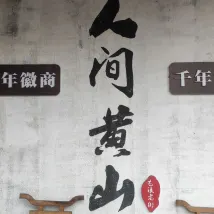 人间黄山
年徽商
千年